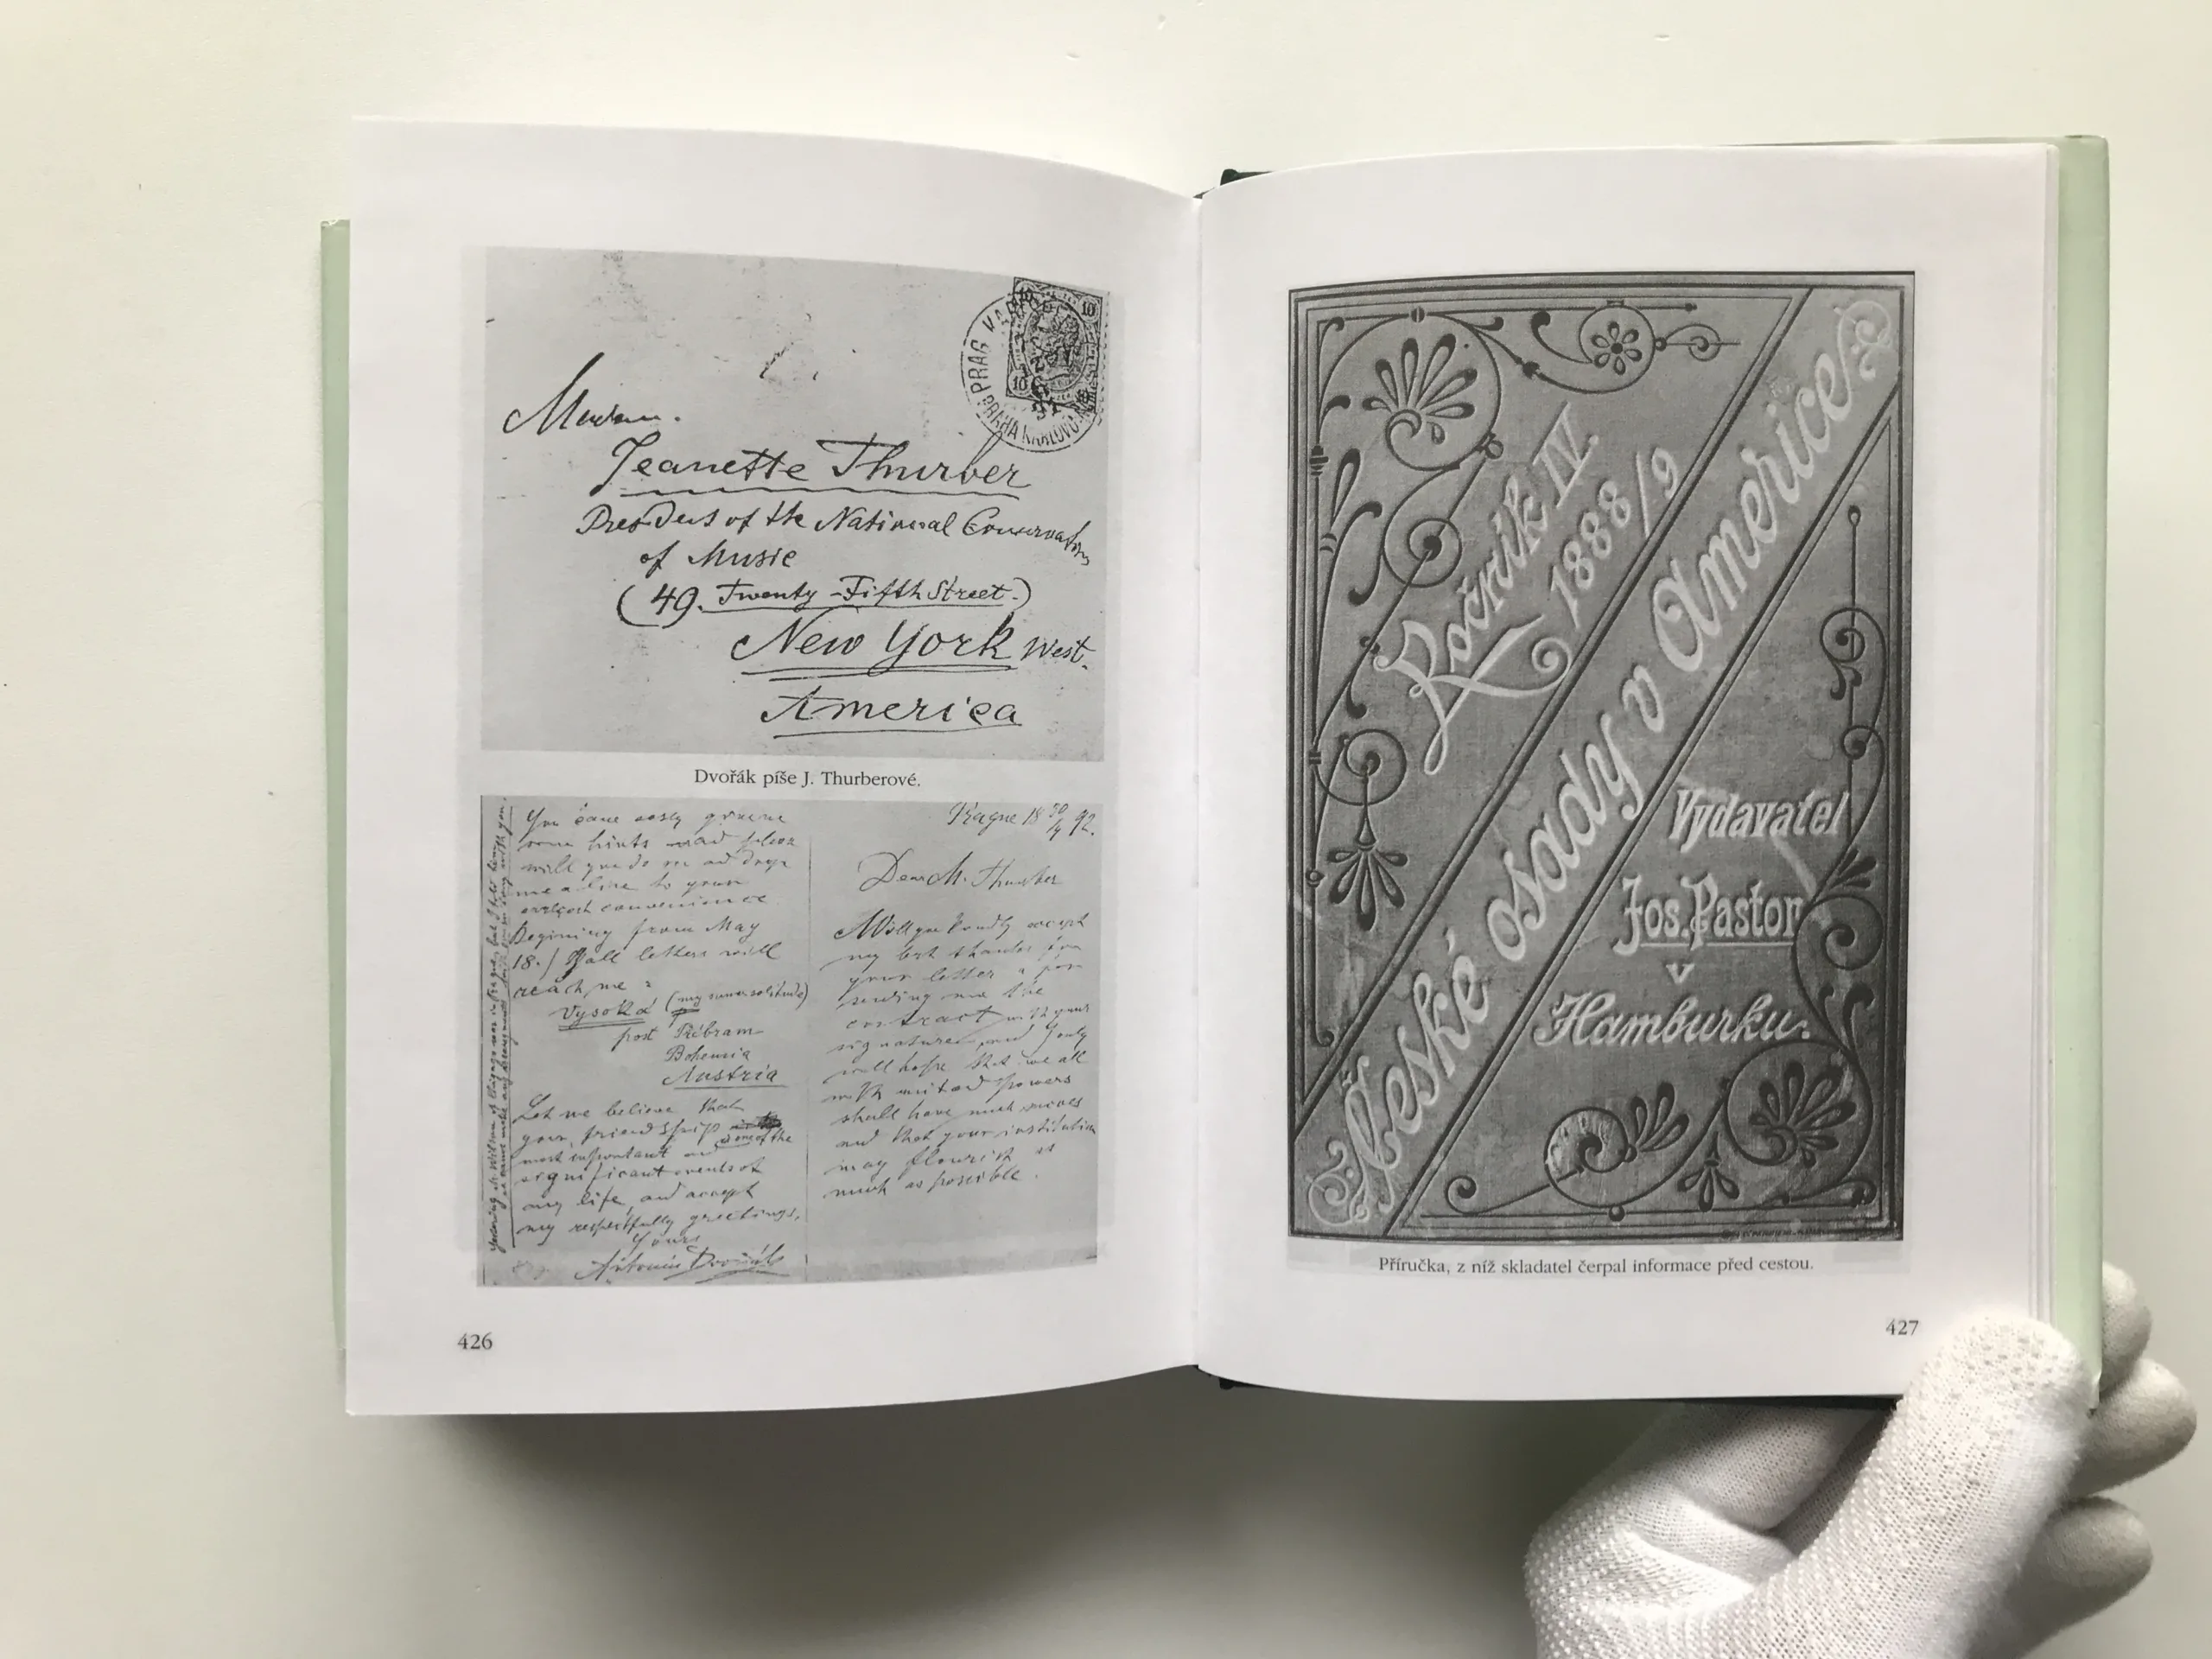 10
10
PRAG
PRAHA
Jeanette Thurber
of the National
of Music
(49. Twenty-Fifth Street.)
New York West.
America
Dvořák píše J. Thurberové.
some hints and
me a line to your
convenience
Begining from May
18./ all letters will
reach me :
Vysoká (my
post Příbram
Bohemia
Austria
Let me believe that
your friendship one of the
most important and
significant events of
my life, and accept
my respectfully greetings,
Yours
Antonín Dvořák
Prague 18 30/4 92.
Dear M. Thurber
Will you kindly accept
my best thanks for
your letter a for
sending me the
contract with your
signature, and I only
will hope, that we all
with united powers
shall have much succes
and that your institution
may flourish as
much as possible.
426
Ročník IV.
1888/9
České osady v Americe
Vydavatel
Jos. Pastor
v
Hamburku.
Příručka, z níž skladatel čerpal informace před cestou.
427